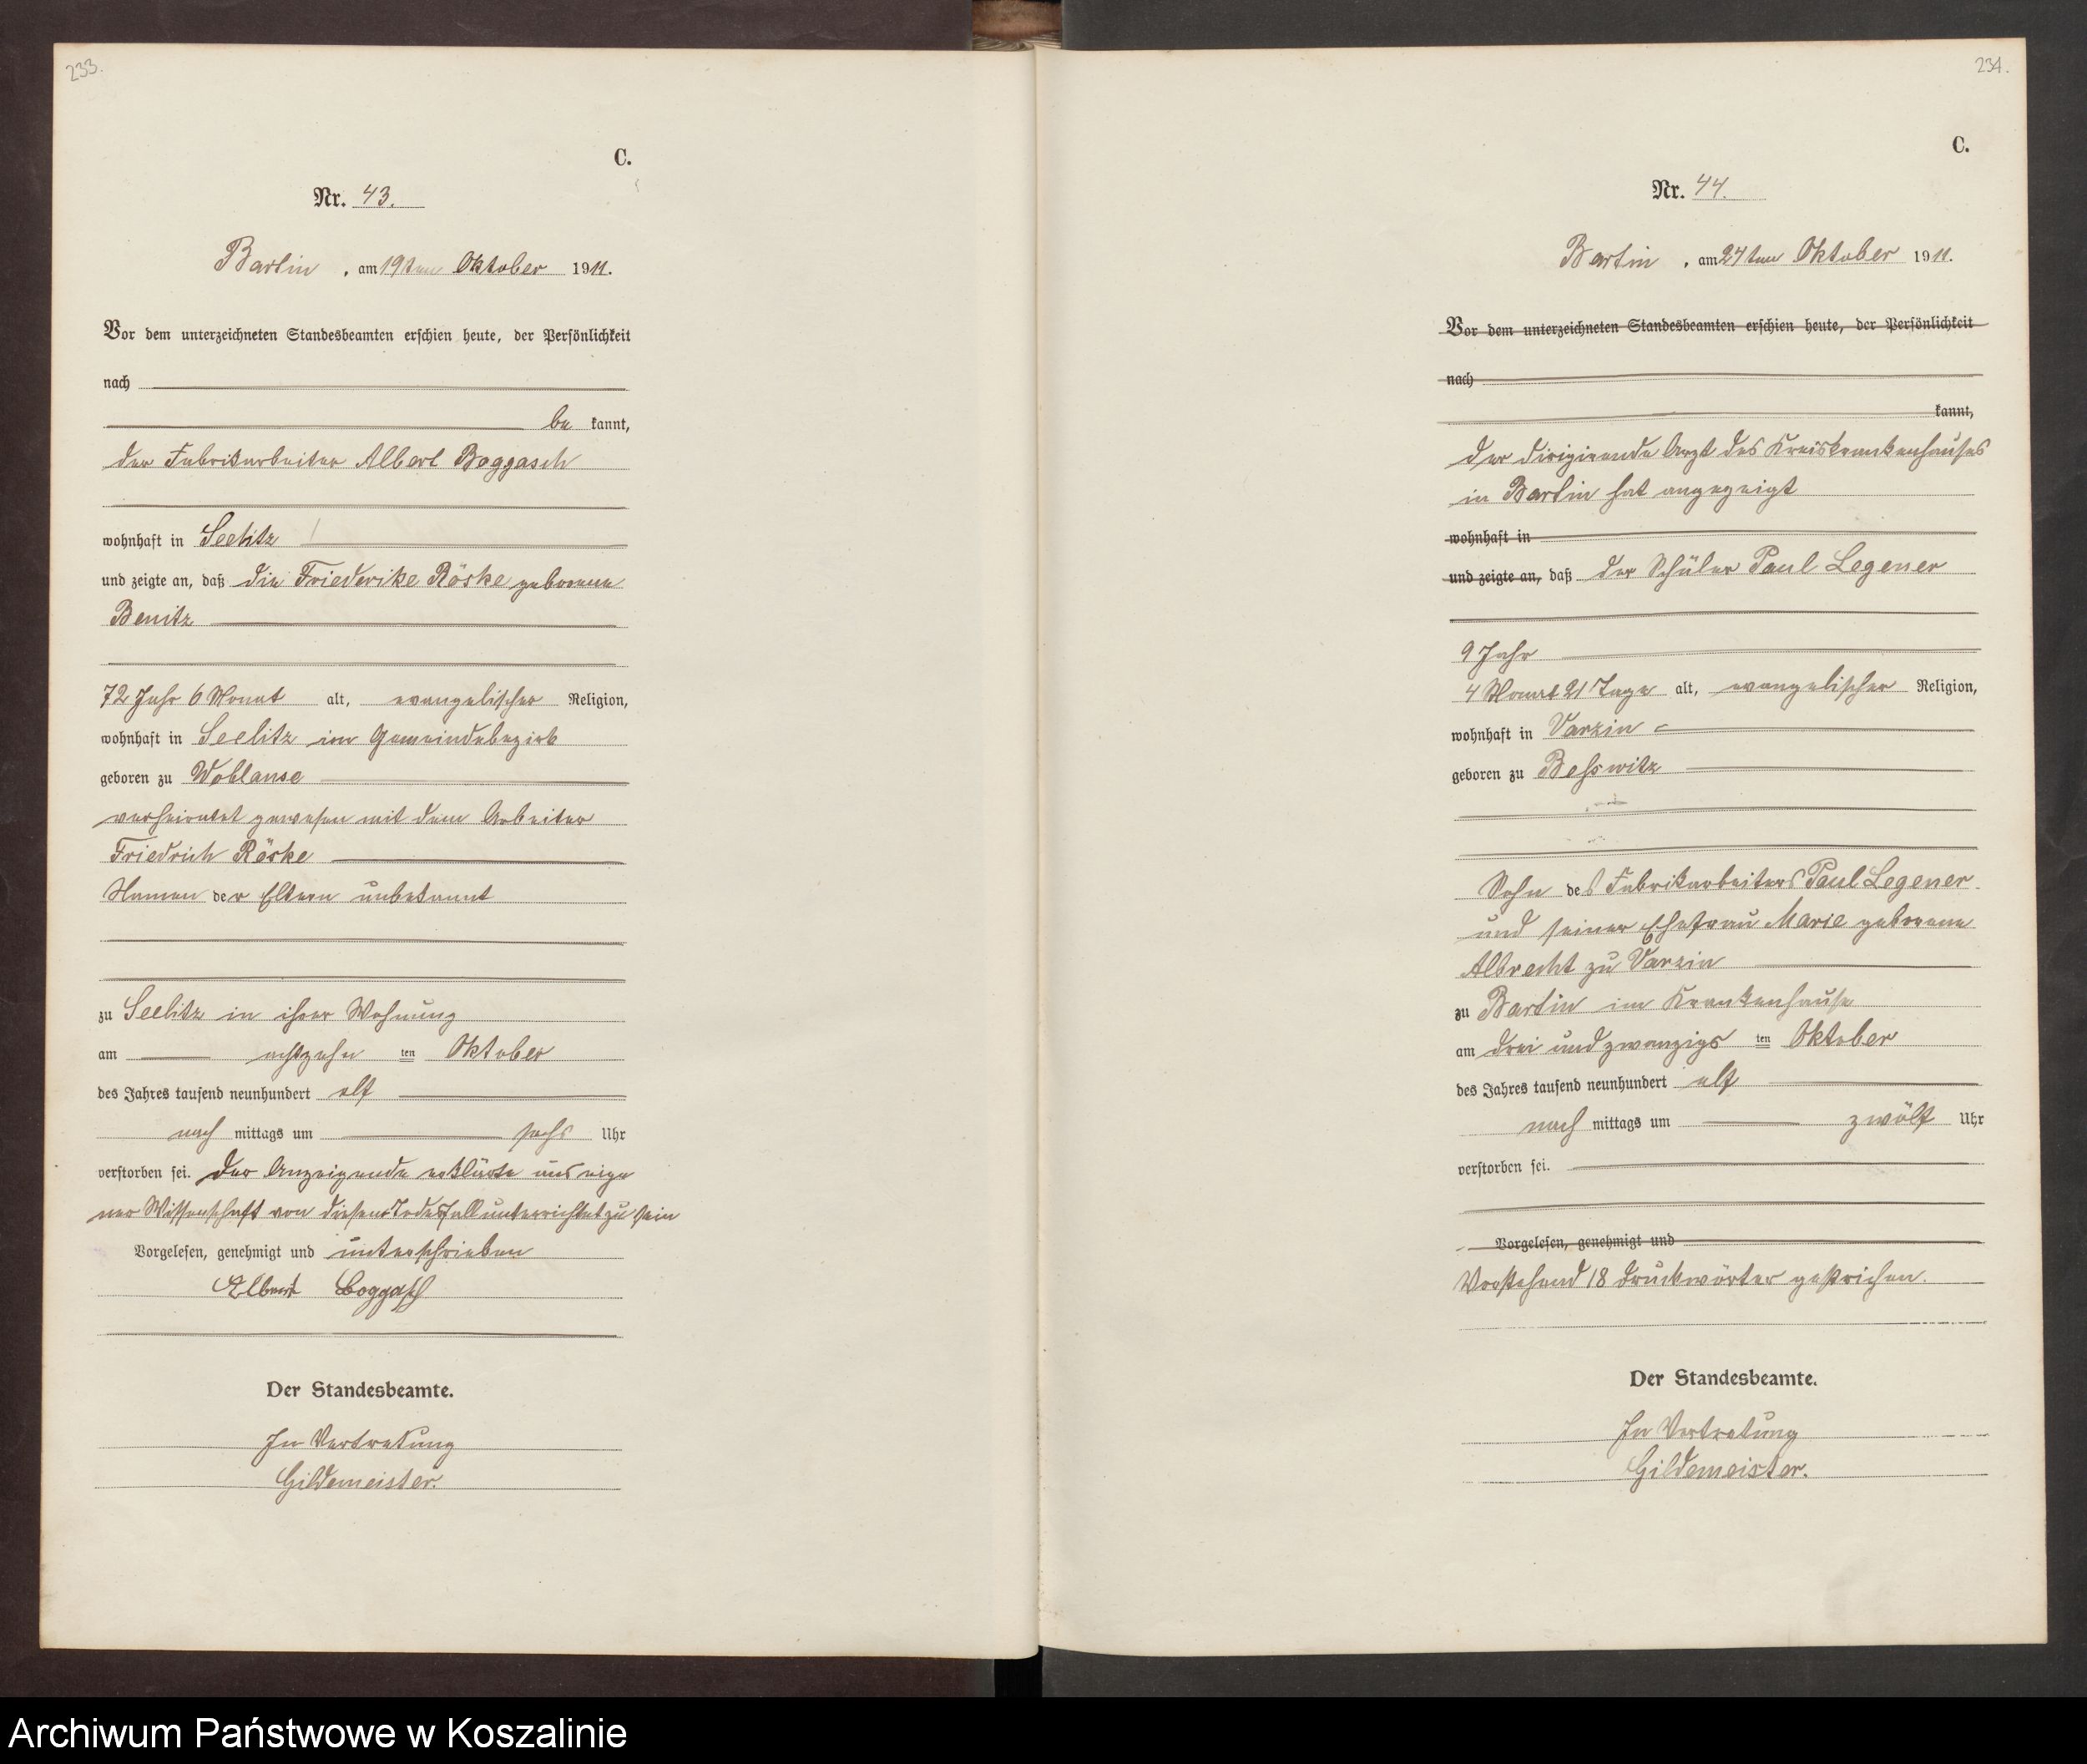 233.
C.
Nr. 43.
Bartin, am 19ten Oktober 1911.
Vor dem unterzeichneten Standesbeamten erschien heute, der Persönlichkeit
nach
be kannt,
der Fabrikarbeiter Albert Boggasch
wohnhaft in Seelitz
und zeigte an, daß die Friederike Röske geborene
Benitz
72 Jahr 6 Monat alt, evangelischer Religion,
wohnhaft in Seelitz im Gemeindebezirk
geboren zu Woblanse
verheiratet gewesen mit dem Arbeiter
Friedrich Röske
Namen der Eltern unbekannt
zu Seelitz in ihrer Wohnung
am achtzehn ten Oktober
des Jahres tausend neunhundert elf
nach mittags um sechs Uhr
verstorben sei. Der Anzeigende erklärte aus eige
ner Wissenschaft von diesem Todesfall unterrichtet zu sein
Vorgelesen, genehmigt und unterschrieben
Albert Boggasch
Der Standesbeamte.
In Vertretung
Gildemeister.
234.
C.
Nr. 44.
Bartin, am 24ten Oktober 1911.
Vor dem unterzeichneten Standesbeamten erschien heute, der Persönlichkeit
nach
kannt,
der dirigirende Arzt des Kreiskrankenhauses
in Bartin hat angezeigt
wohnhaft in
und zeigte an, daß der Schüler Paul Legener
9 Jahr
4 Monat 21 Tage alt, evangelischer Religion,
wohnhaft in Varzin
geboren zu Beßwitz
Sohn des Fabrikarbeiters Paul Legener
und seiner Ehefrau Marie geborene
Albrecht zu Varzin
zu Bartin im Krankenhause
am drei und zwanzigs ten Oktober
des Jahres tausend neunhundert elf
nach mittags um zwölf Uhr
verstorben sei.
Vorgelesen, genehmigt und
Vorstehend 18 Druckwörter gestrichen.
Der Standesbeamte.
In Vertretung
Gildemeister.
Archiwum Państwowe w Koszalinie